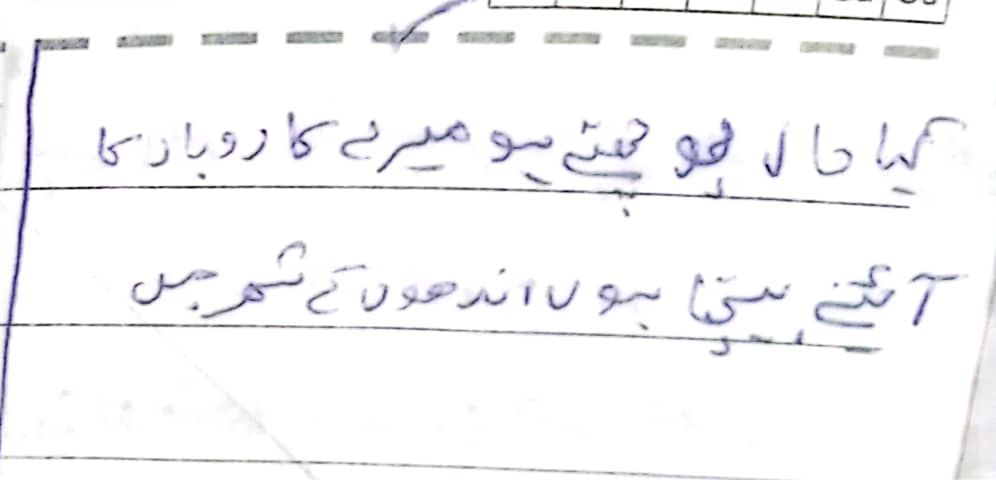 کیا حال پوچھتے ہو میرے کاروبار کا
آئنے بیچتا ہوں اندھوں کے شہر میں